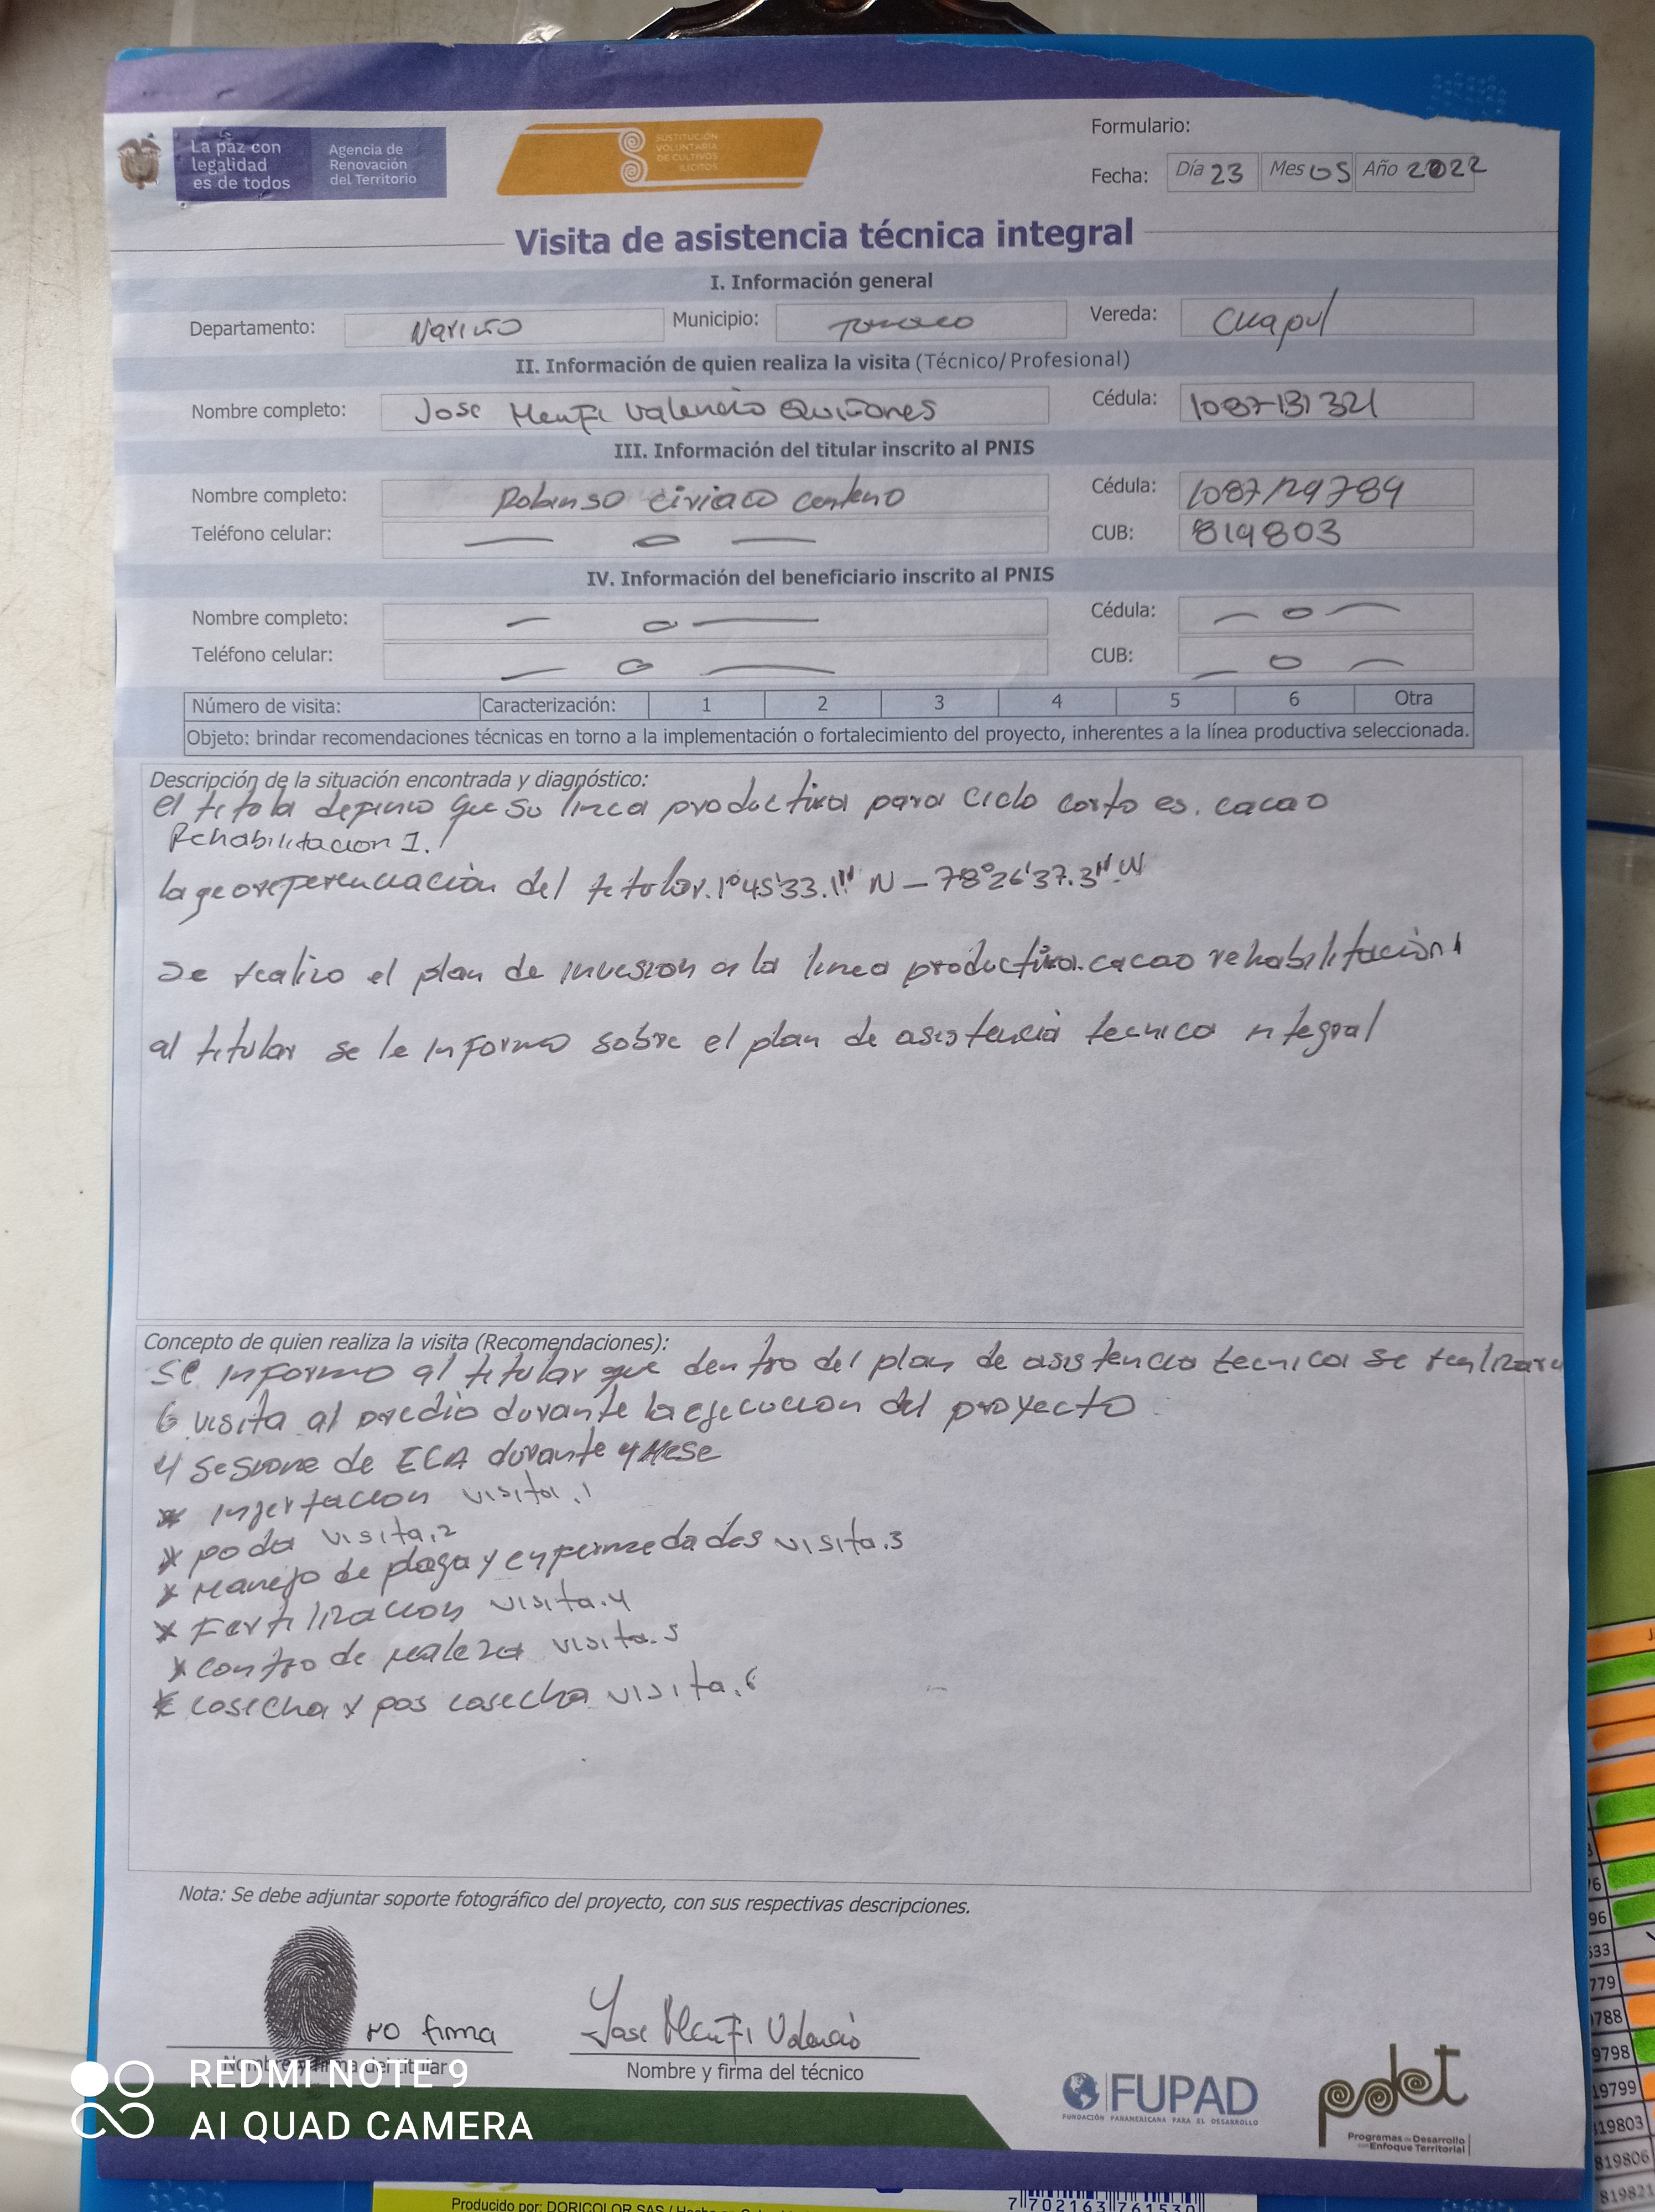 La paz con
legalidad
es de todos
Agencia de
Renovación
del Territorio
SUSTITUCIÓN
VOLUNTARIA
DE CULTIVOS
ILÍCITOS
Formulario:
Fecha: Día 23 Mes 05 Año 2022
Visita de asistencia técnica integral
I. Información general
Departamento: Nariño Municipio: Tumaco Vereda: Cuapul
II. Información de quien realiza la visita (Técnico/Profesional)
Nombre completo: Jose Menfi Valencia Quiñones Cédula: 1087131321
III. Información del titular inscrito al PNIS
Nombre completo: Robinso Ciriaco Centeno Cédula: 1087129789
Teléfono celular: — 0 — CUB: 819803
IV. Información del beneficiario inscrito al PNIS
Nombre completo: — 0 — Cédula: — 0 —
Teléfono celular: — 0 — CUB: — 0 —
Número de visita: Caracterización: 1 2 3 4 5 6 Otra
Objeto: brindar recomendaciones técnicas en torno a la implementación o fortalecimiento del proyecto, inherentes a la línea productiva seleccionada.
Descripción de la situación encontrada y diagnóstico:
el titola definio que su linea productiva para ciclo corto es. cacao
Rehabilitacion 1.
la georeferenciación del titular. 1°45'33.1" N – 78°26'37.3" W
se realizo el plan de invesion a la linea productiva. cacao rehabilitación 1
al titular se le informo sobre el plan de asistencia tecnica ntegral
Concepto de quien realiza la visita (Recomendaciones):
Se informo al titular que dentro del plan de asistencia tecnica se realizara
6 visita al predio durante la ejecucion del proyecto
4 sesione de ECA durante 4 mese
* injertacion visita.1
* poda visita.2
* manejo de plaga y enfermedades visita.3
* Fertilizacion visita.4
* contro de maleza visita.5
* cosecha y pos cosecha visita.6
Nota: Se debe adjuntar soporte fotográfico del proyecto, con sus respectivas descripciones.
no firma
Jose Menfi Valencia
Nombre y firma del titular
Nombre y firma del técnico
REDMI NOTE 9
AI QUAD CAMERA
FUPAD
FUNDACIÓN PANAMERICANA PARA EL DESARROLLO
pdet
Programas de Desarrollo
con Enfoque Territorial
Producido por: DORICOLOR SAS
7 702163 761530
96
533
779
788
9798
19799
19803
819806
819821